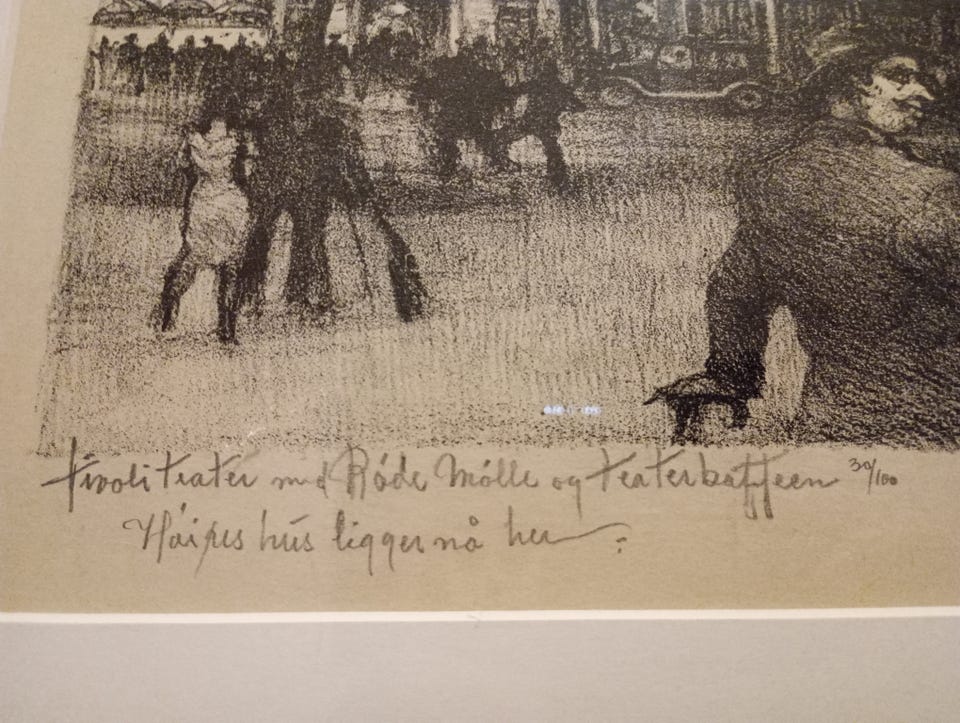 tivoli teater med Røde Mølle og teaterkaffeen 30/100
hús ligger nå her